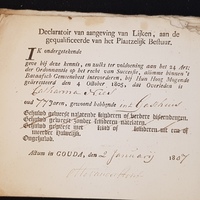 Declaratoir van aangeving van Lijken, aan de
gequalificeerde van het Plaatzelijk Bestuur.
IK ondergetekende
geve bij dezen kennis, en zulks ter voldoening aan het 24 Art:
der Ordonnantie op het recht van Successie, alomme binnen't
Bataafsch Gemeenebest introduceren, bij Hun Hoog Mogende
gearresteerd den 4 October 1805, dat Overleden is
Catharina
oud 77 Jaren, gewoond hebbende
Gehuwd geweest nalatende kinderen of verdere
Gehuwd geweest zonder kinderen natelaten.
Gehuwd geweest met kind of kinderen uit een of
meerder Huwelijk.
Ongehuwd.
Actum in GOUDA, den 2 January 1807